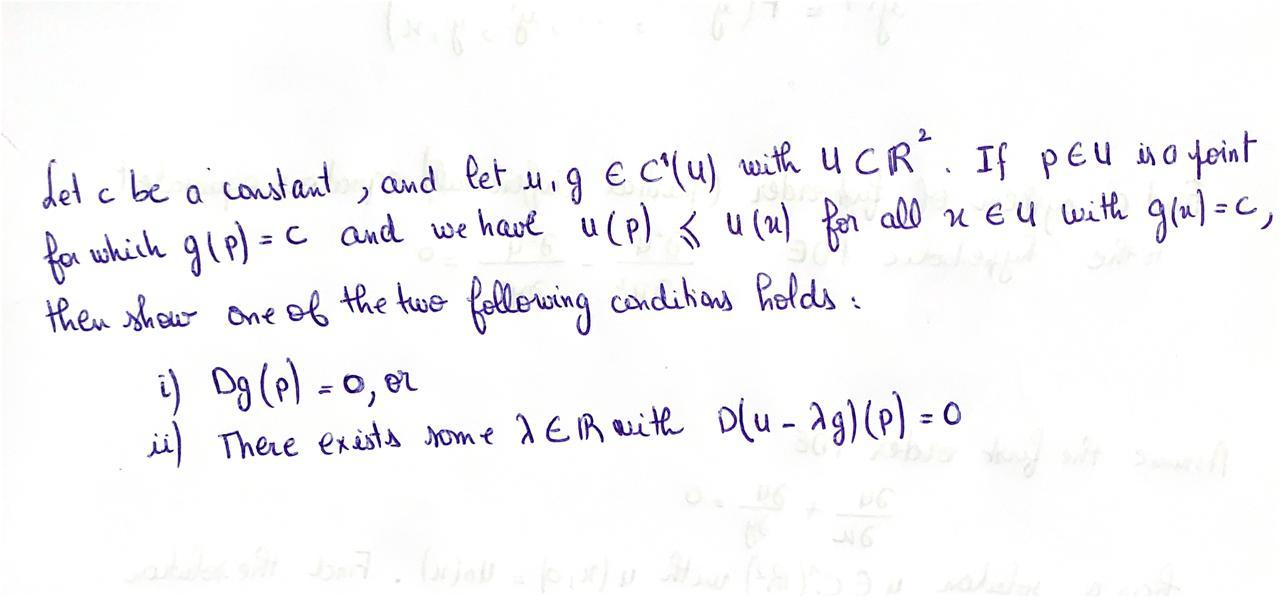 Let c be a constant, and let u, g ∈ C¹(U) with U ⊂ ℝ². If p ∈ U is a point
for which g(p) = c and we have u(p) ≤ u(x) for all x ∈ U with g(x) = c,
then show one of the two following conditions holds:
i) Dg(p) = 0, or
ii) There exists some λ ∈ ℝ with D(u - λg)(p) = 0